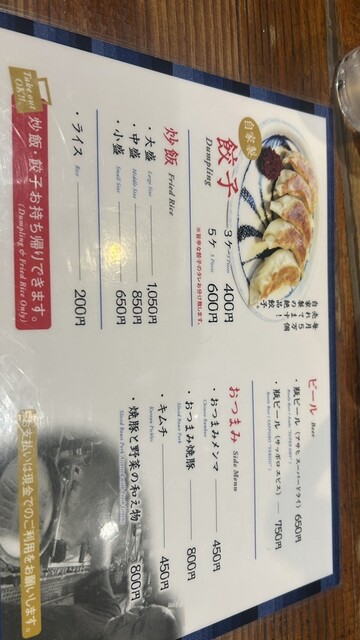 自家製
餃子
Dumpling
3ケ 3 Pieces 400円
5ケ 5 Pieces 600円
※旨辛な餃子のタレお分け致します。
毎月5万個
売れてます!
自家製の絶品餃子
炒飯 Fried Rice
・大盛 Large Size 1,050円
・中盛 Middle Size 850円
・小盛 Small Size 650円
・ライス Rice 200円
Take out OK!!
炒飯・餃子お持ち帰りできます。
(Dumpling & Fried Rice Only)
ビール Beer
・瓶ビール (アサヒ スーパードライ) 650円
・瓶ビール (サッポロ エビス) 750円
おつまみ Side Menu
・おつまみメンマ 450円
・おつまみ焼豚 800円
Sliced Roast Pork
・キムチ 450円
Korean Pickles
・焼豚と野菜の和え物 800円
お支払いは現金でのご利用をお願いします。